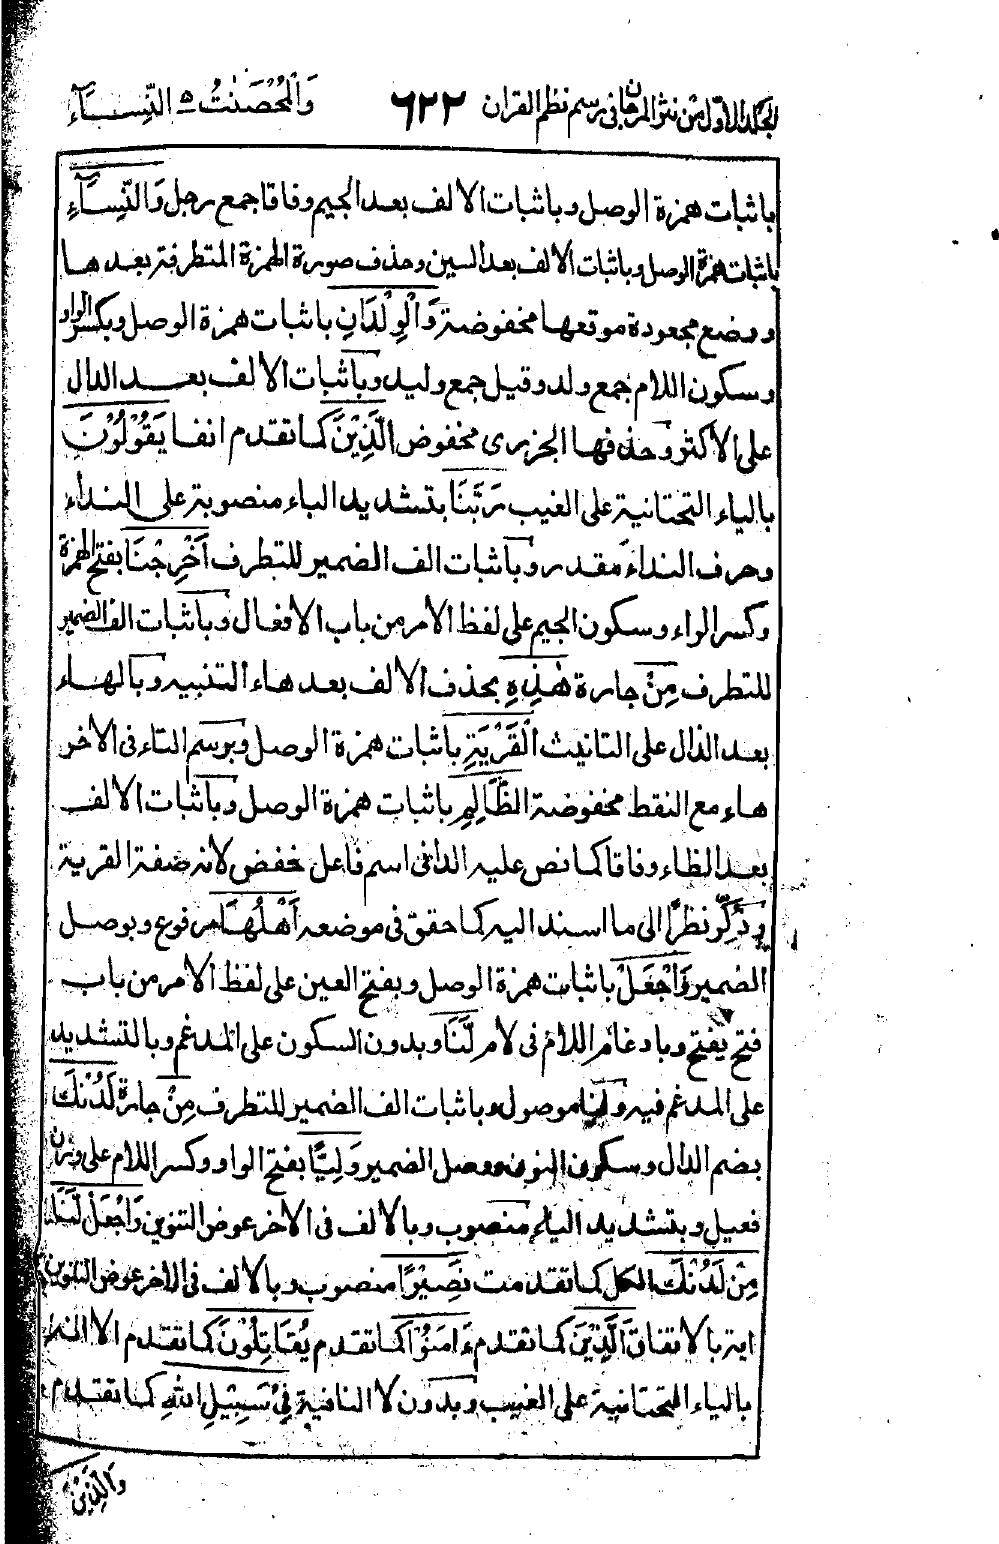 الجلد الاول من نثر المرجان فی رسم نظم القران ٦٢٢ وَالْمُحْصَنٰتُ ٥ النِّسَآء
باثبات همزة الوصل وباثبات الالف بعد الجيم وفاقا جمع رجل وَالنِّسَآءِ
باثبات همزة الوصل وباثبات الالف بعد السين وحذف صورة الهمزة المتطرفة بعدها
ووضع مجعودة موقعها مخفوضة وَالْوِلْدَانِ باثبات همزة الوصل وبكسر الواو
وسكون اللام جمع ولد وقيل جمع وليد وباثبات الالف بعد الدال
على الاكثر وحذفها الجزرى مخفوض الَّذِيْنَ كما تقدم انفا يَقُوْلُوْنَ
بالياء التحتانية على الغيب رَبَّنَا بتشديد الباء منصوبة على النداء
وحرف النداء مقدر وباثبات الف الضمير للتطرف اَخْرِجْنَا بفتح الهمزة
وكسر الراء وسكون الجيم على لفظ الامر من باب الافعال وباثبات الف الضمير
للتطرف مِنْ جارة هٰذِهِ بحذف الالف بعد هاء التنبيه وبالهاء
بعد الذال على التانيث الْقَرْيَةِ باثبات همزة الوصل وبرسم التاء فى الاخر
هاء مع النقط مخفوضة الظَّالِمِ باثبات همزة الوصل وباثبات الالف
بعد الظاء وفاقا كما نص عليه الدانى اسم فاعل خفض لانه صفة القرية
وذُكِّر نظرًا الى ما اسند اليه كما حقق فى موضعه اَهْلُهَا مرفوع وبوصل
الضمير وَاجْعَلْ باثبات همزة الوصل وبفتح العين على لفظ الامر من باب
فتح يفتح وبادغام اللام فى لام لَّنَا وبدون السكون على المدغم وبالتشديد
على المدغم فيه ولنا موصول وباثبات الف الضمير للتطرف مِنْ جارة لَدُنْكَ
بضم الدال وسكون النون ووصل الضمير وَلِيًّا بفتح الواو وكسر اللام على وزن
فعيل وبتشديد الياء منصوب وبالالف فى الاخر عوض التنوين وَاجْعَلْ لَّنَا
مِنْ لَدُنْكَ الكل كما تقدمت نَصِيْرًا منصوب وبالالف فى الاخر عوض التنوين
اية بالاتفاق اَلَّذِيْنَ كما تقدم ءَامَنُوْا كما تقدم يُقَاتِلُوْنَ كما تقدم الا انه
بالياء التحتانية على الغيب وبدون لا النافية فِىْ سَبِيْلِ اللهِ كما تقدم
وَالَّذِيْنَ